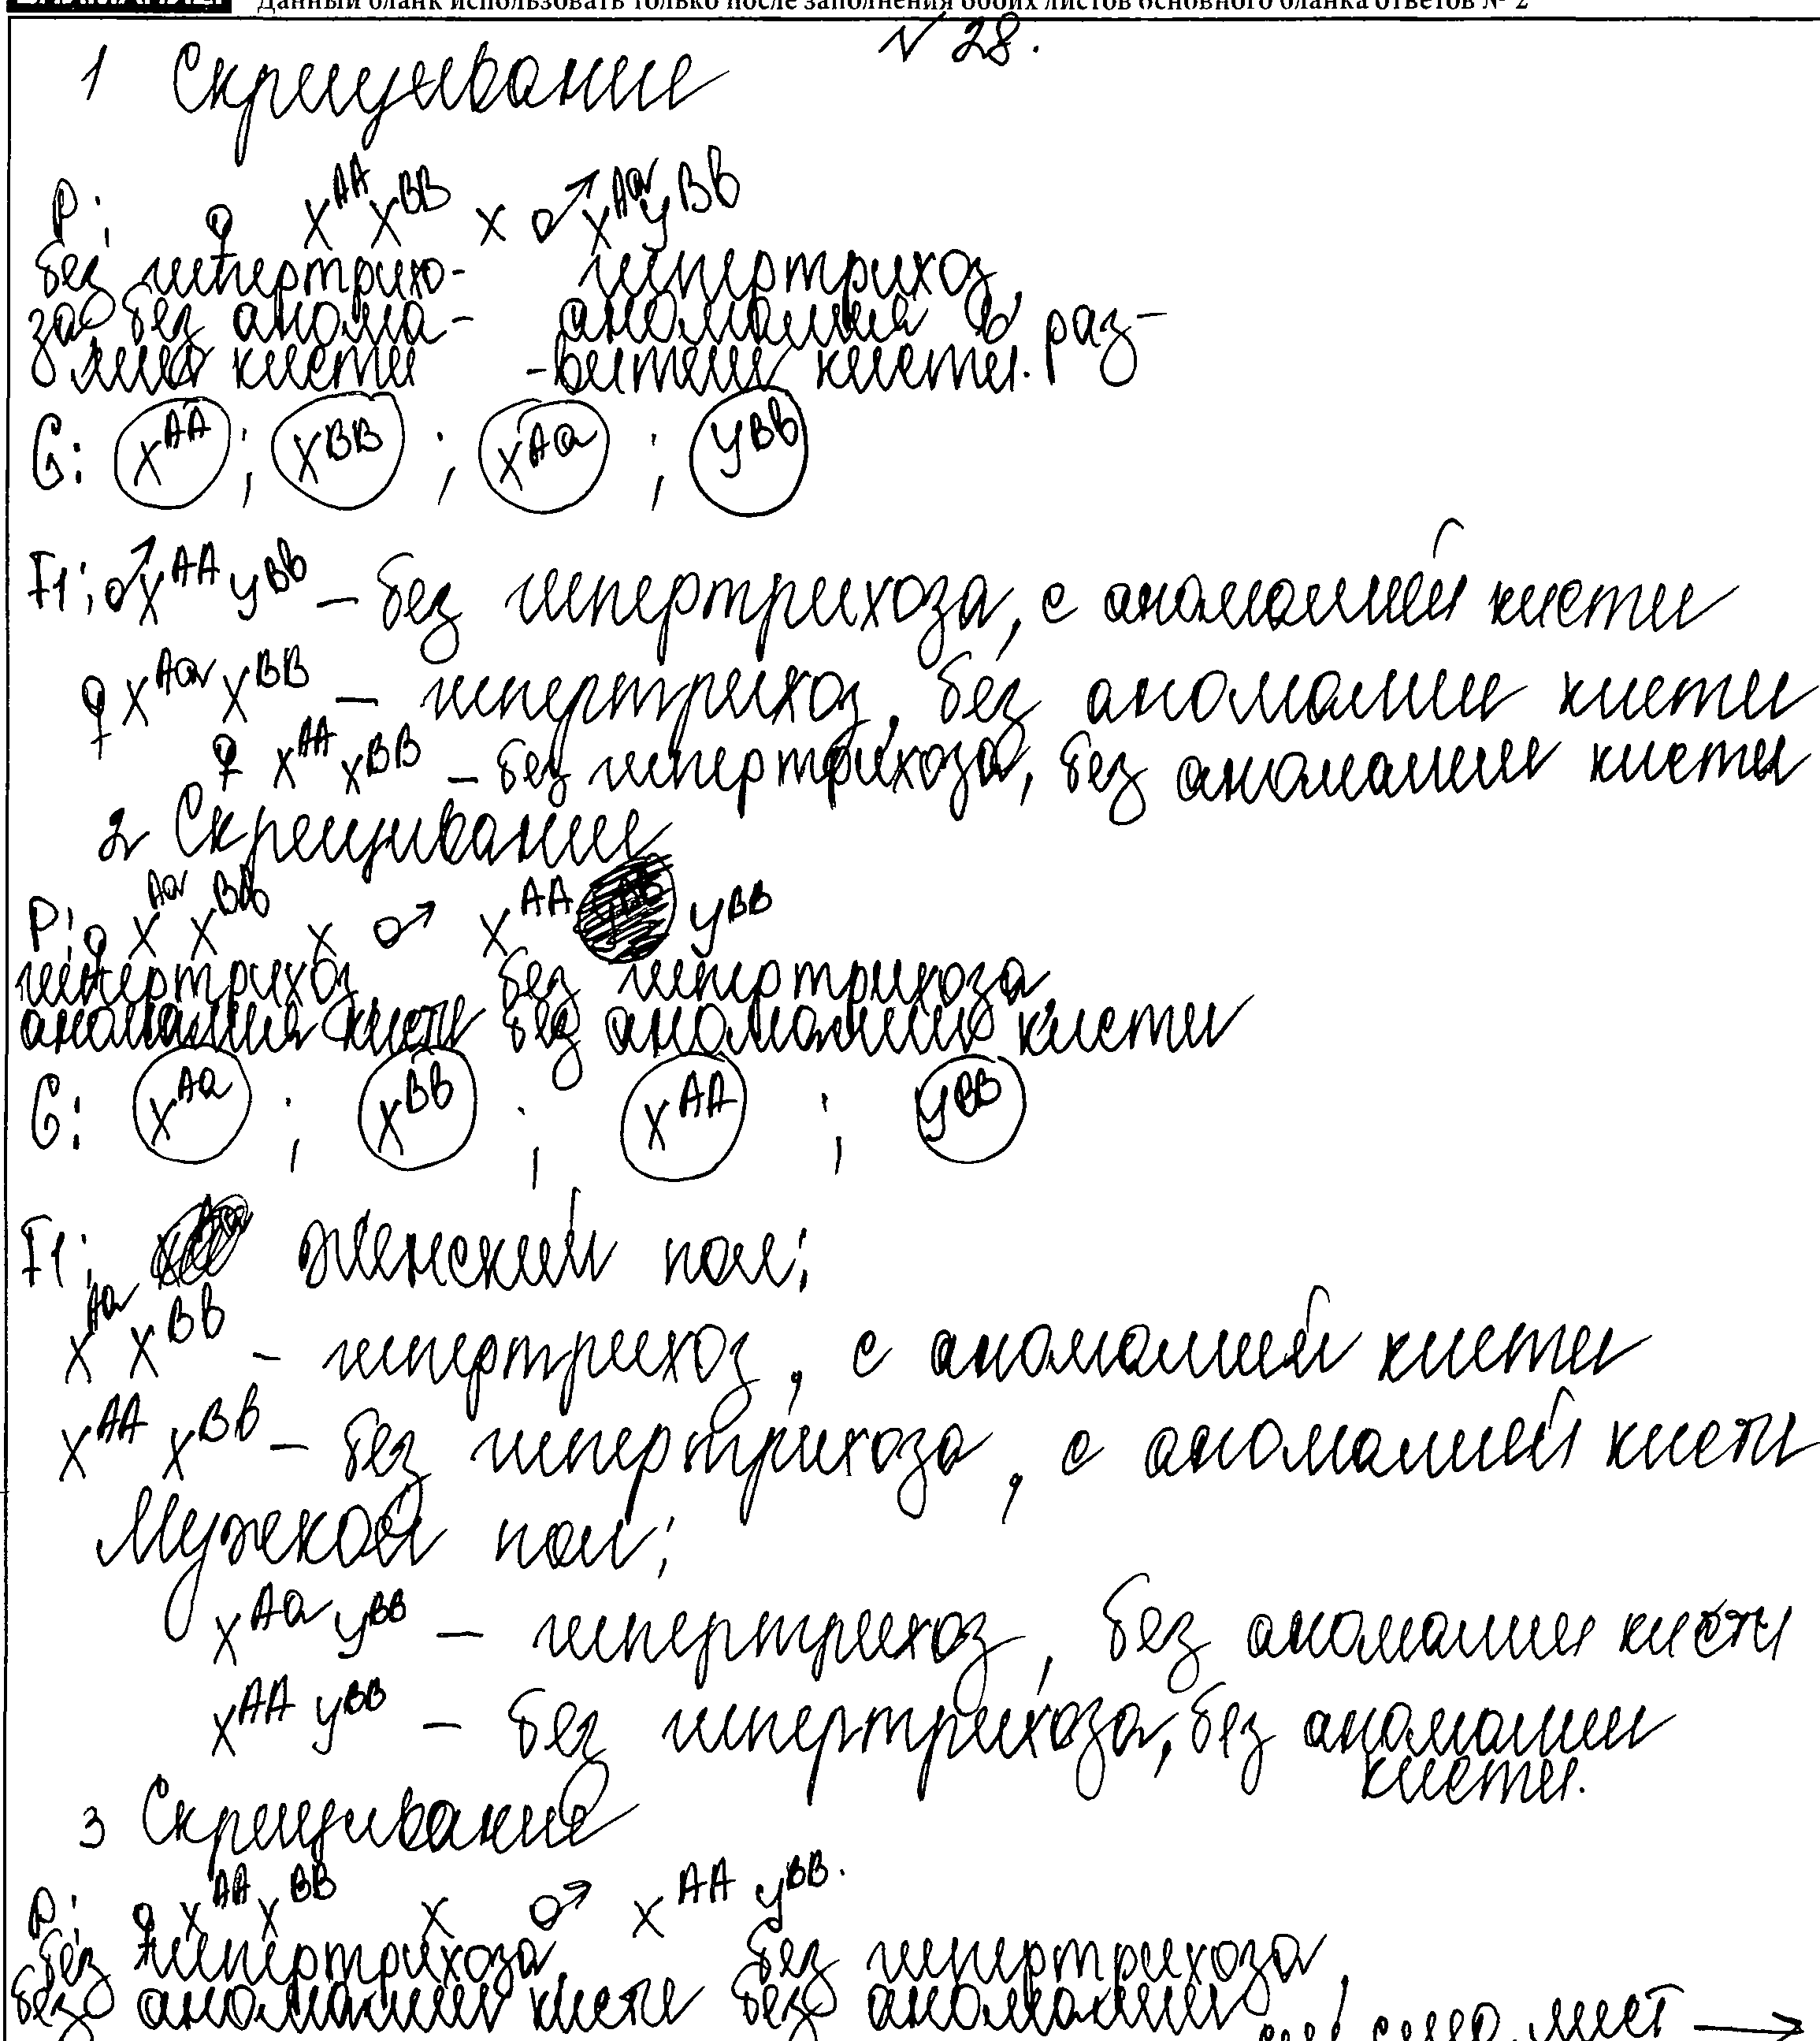 Данный бланк использовать только после заполнения обоих листов основного бланка ответов № 2
№ 28.
1 Скрещивание
P: ♀ X^AA X^BB x ♂ X^Aa Y^Bb
без гипертрихо- гипертрихоз,
за без анома- аномалия в раз-
лии кисти -витии кисти.
G: X^AA ; X^BB ; X^Aa ; Y^Bb
F1: ♂ X^AA Y^Bb – без гипертрихоза, с аномалией кисти
♀ X^Aa X^BB – гипертрихоз, без аномалии кисти
♀ X^AA X^BB – без гипертрихоза, без аномалии кисти
2 Скрещивание
P: ♀ X^Aa X^Bb x ♂ X^AA Y^BB
гипертрихоз без гипертрихоза
аномалия кисти без аномалии кисти
G: X^Aa ; X^Bb ; X^AA ; Y^BB
F1: Женский пол:
X^Aa X^Bb – гипертрихоз, с аномалией кисти
X^AA X^Bb – без гипертрихоза, с аномалией кисти
Мужской пол:
X^Aa Y^BB – гипертрихоз, без аномалии кисти
X^AA Y^BB – без гипертрихоза, без аномалии
кисти.
3 Скрещивание
P: ♀ X^AA X^BB x ♂ X^AA Y^BB.
без гипертрихоза без гипертрихоза,
без аномалии кисти без аномалии
лист →